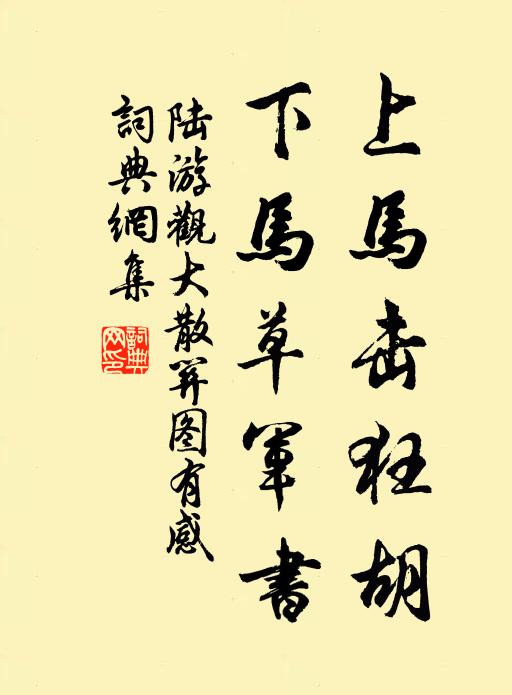 上馬击狂胡
下馬草軍書
陆游觀大散関图有感
詞典網集
詞典网印